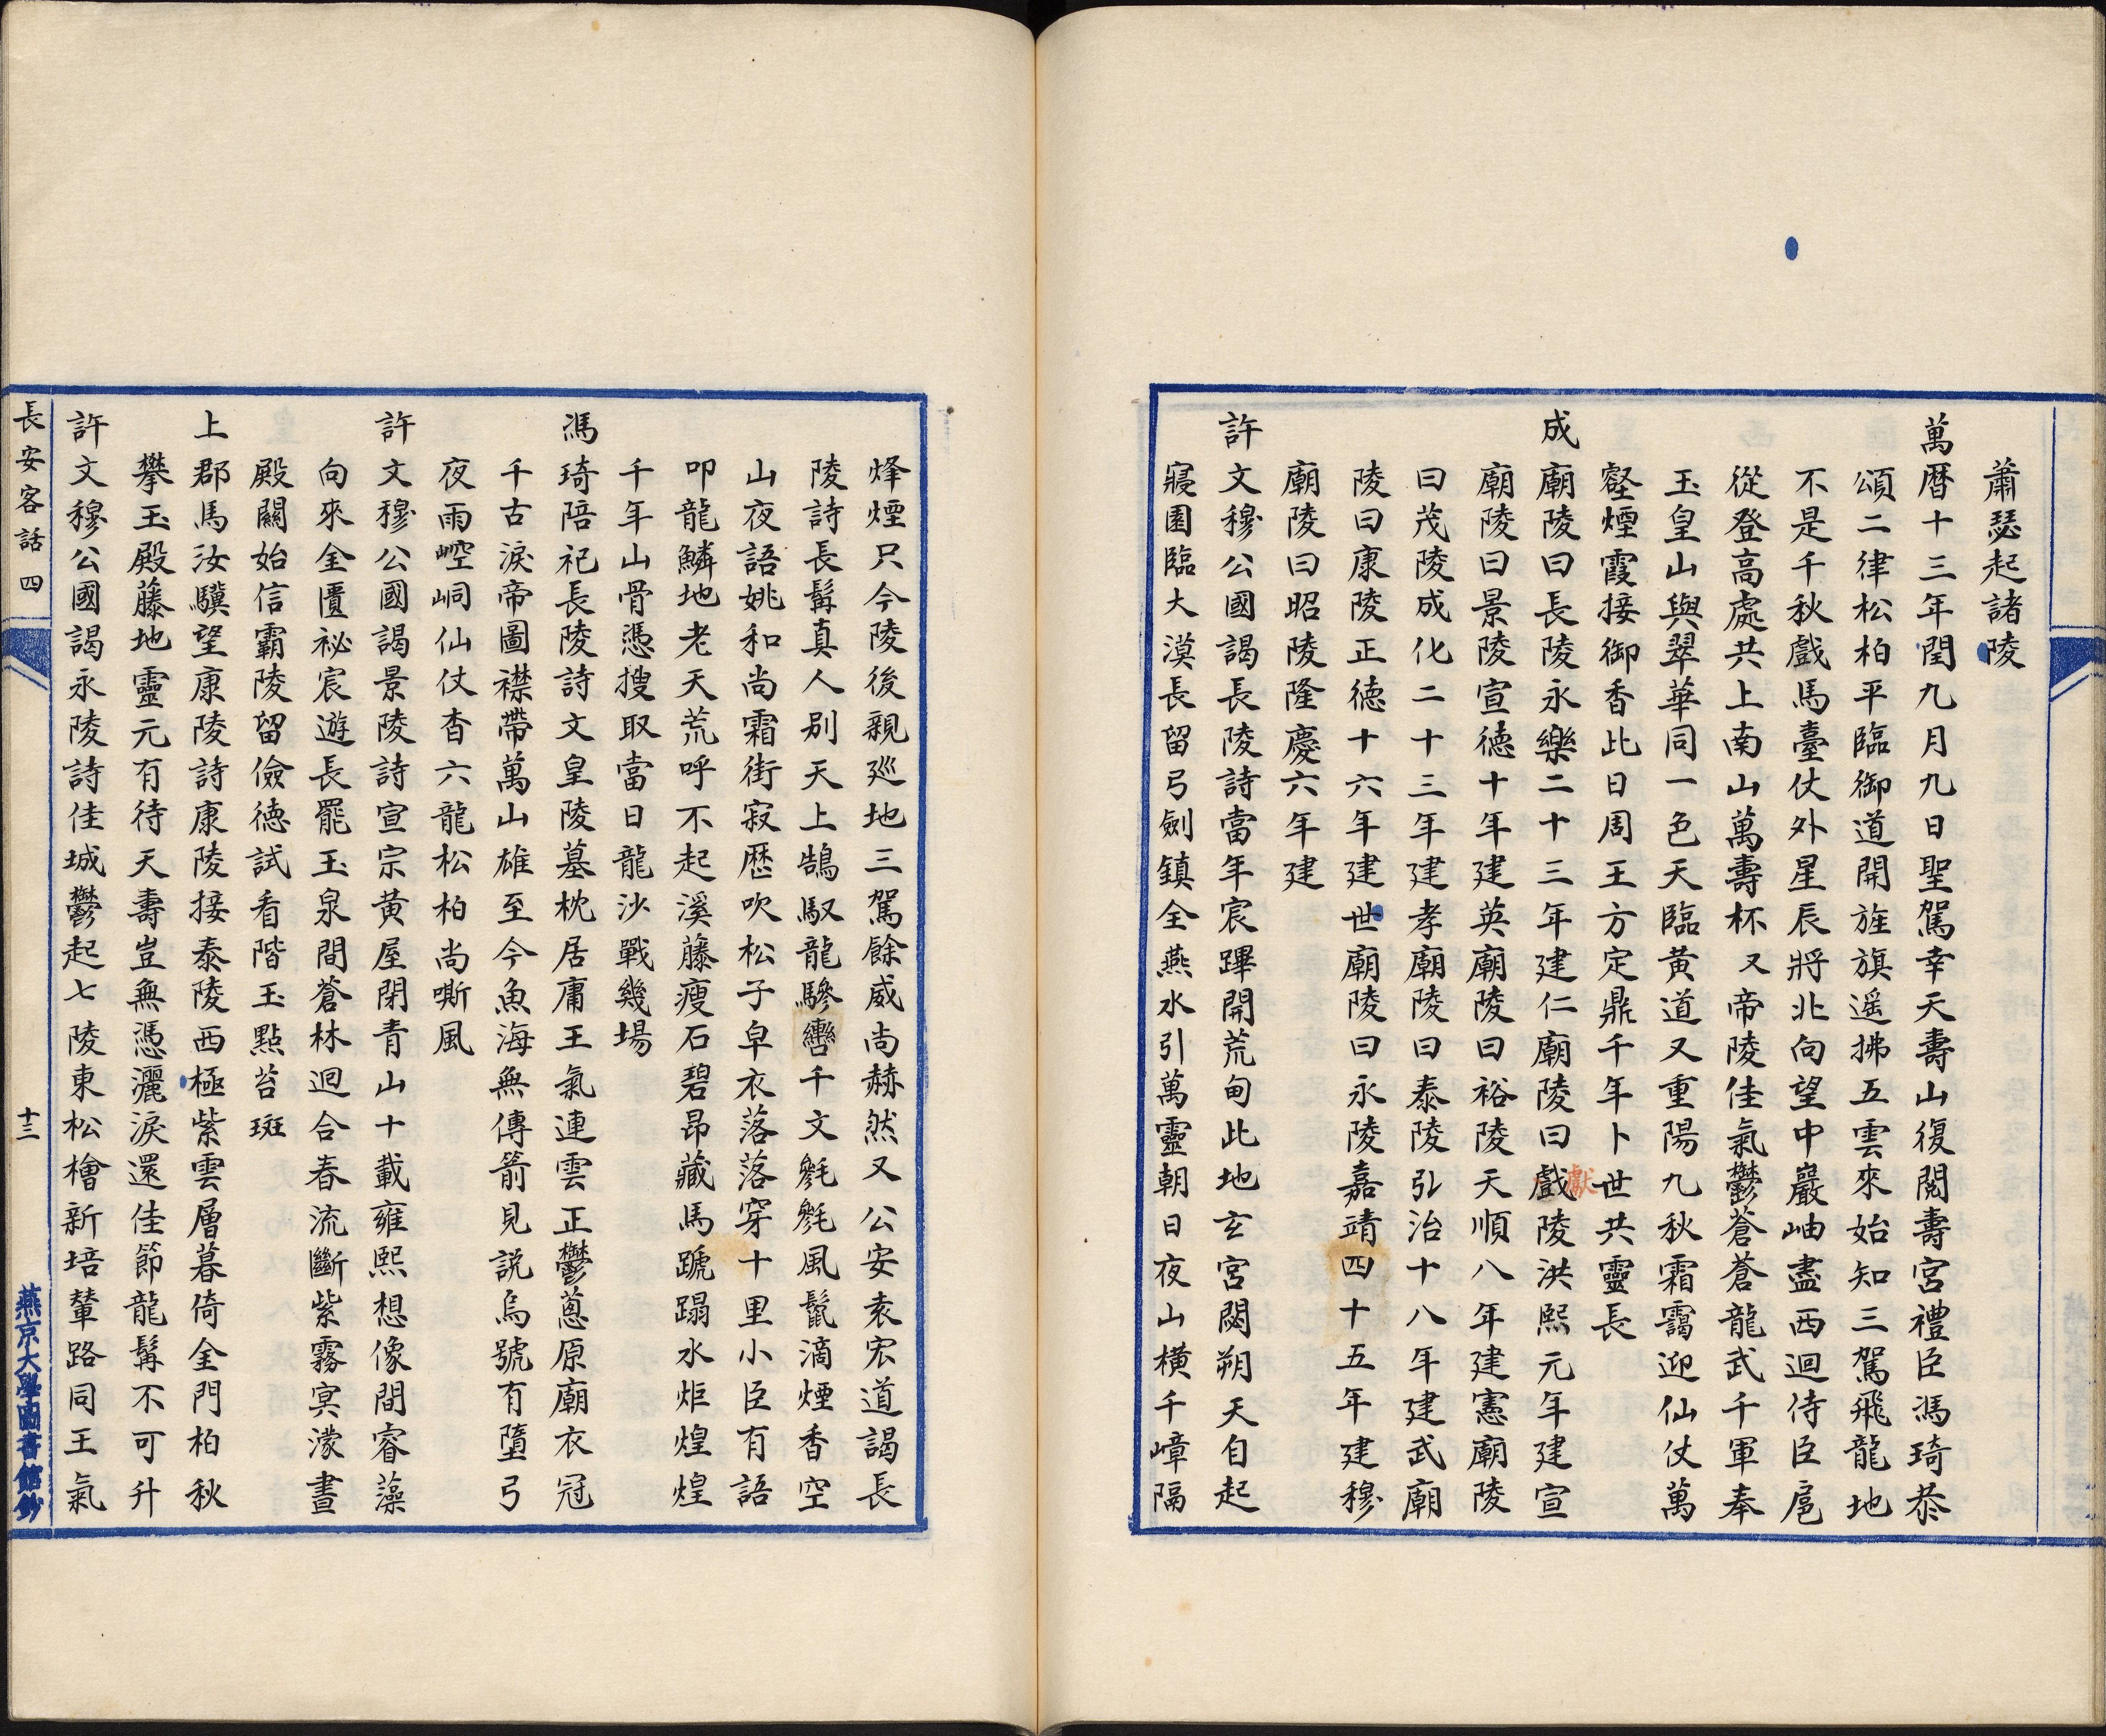 蕭瑟起諸陵
萬曆十三年閏九月九日聖駕幸天壽山復閱壽宮禮臣馮琦恭
頌二律松柏平臨御道開旌旗遥拂五雲來始知三駕飛龍地
不是千秋戲馬臺仗外星辰將北向望中巖岫盡西迴侍臣扈
從登高處共上南山萬壽杯又帝陵佳氣鬱蒼蒼龍武千軍奉
玉皇山與翠華同一色天臨黄道又重陽九秋霜靄迎仙仗萬
壑煙霞接御香此日周王方定鼎千年卜世共靈長
成廟陵曰長陵永樂二十三年建仁廟陵曰戲陵洪熙元年建宣
獻
廟陵曰景陵宣德十年建英廟陵曰裕陵天順八年建憲廟陵
曰茂陵成化二十三年建孝廟陵曰泰陵弘治十八年建武廟
陵曰康陵正德十六年建世廟陵曰永陵嘉靖四十五年建穆
廟陵曰昭陵隆慶六年建
許文穆公國謁長陵詩當年宸蹕開荒甸此地玄宮閟朔天自起
寢園臨大漠長留弓劍鎮全燕水引萬靈朝日夜山橫千嶂隔
烽煙只今陵後親廵地三駕餘威尚赫然又公安袁宏道謁長
陵詩長髯真人别天上鵠馭龍驂轡千文毿毿風鬣滴煙香空
山夜語姚和尚霜街寂歷吹松子皁衣落落穿十里小臣有語
叩龍鱗地老天荒呼不起溪藤瘦石碧昂藏馬蹏蹋水炬煌煌
千年山骨憑搜取當日龍沙戰幾場
馮琦陪祀長陵詩文皇陵墓枕居庸王氣連雲正鬱蔥原廟衣冠
千古淚帝圖襟帶萬山雄至今魚海無傳箭見説烏號有墮弓
夜雨崆峒仙仗杳六龍松柏尚嘶風
許文穆公國謁景陵詩宣宗黄屋閉青山十載雍熙想像間睿藻
向來金匱祕宸遊長罷玉泉間蒼林迴合春流斷紫霧冥濛晝
殿關始信霸陵留儉德試看階玉點苔斑
上郡馬汝驥望康陵詩康陵接泰陵西極紫雲層暮倚金門柏秋
攀玉殿藤地靈元有待天壽豈無憑灑淚還佳節龍髯不可升
許文穆公國謁永陵詩佳城鬱起七陵東松檜新培輦路同王氣
長安客話四
十三
燕京大學圖書館鈔